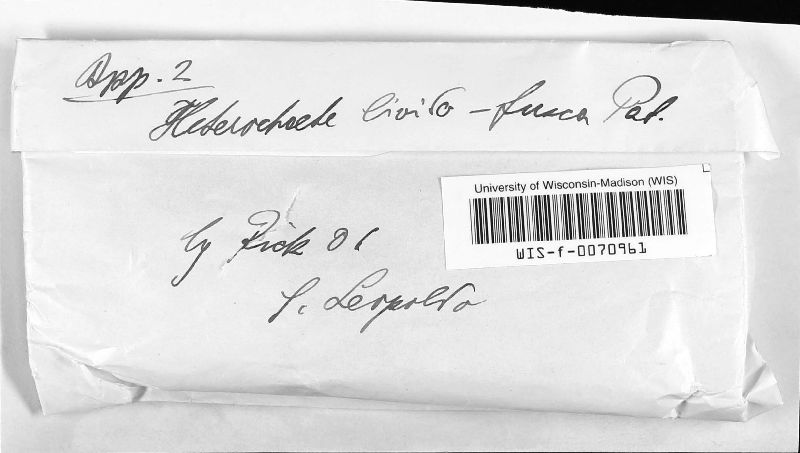 App. 2
Heterochaete livido-fusca Pat.
University of Wisconsin-Madison (WIS)
WIS-f-0070961
lg Rick 01
S. Leopoldo